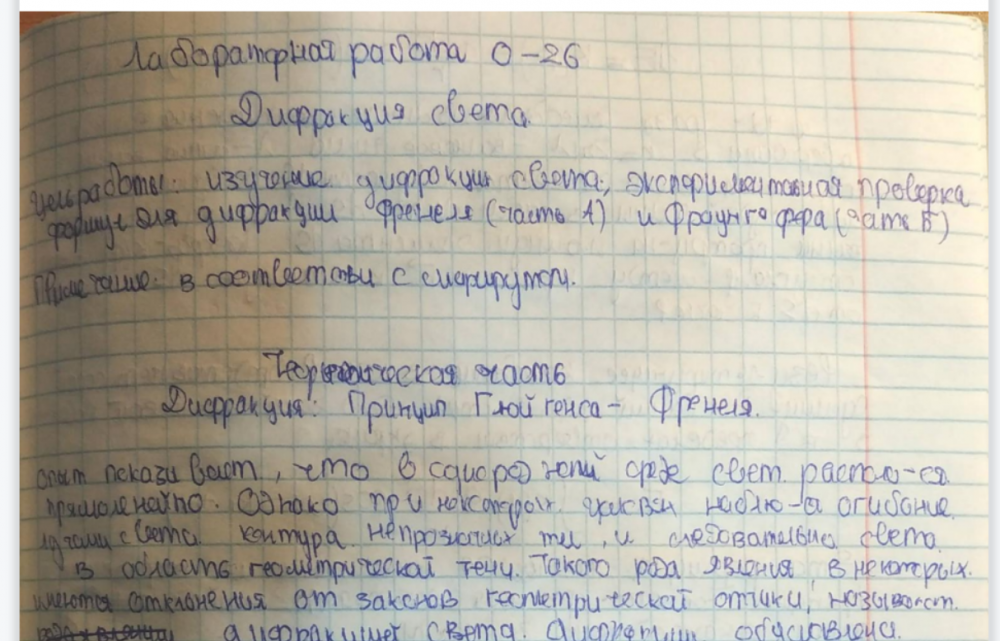 Лаборатрная работа О-26
Дифракция света.
Цель работы: изучение дифракции света, экспериментальная проверка
формул для дифракции Френеля (часть А) и Фраунгофера (часть Б)
Примечание: в соответстви с маршрутом.
Теоретическая часть
Дифракция: Принцип Гюйгенса - Френеля.
опыт показывает, что в однородной среде свет распо-ся
прямоленейно. Однако при некоторых наблю-а огибание
лучами света контура непрозначных тел, и следовательно света
в область геометрической тени. Такого рода явления, в некоторых
имеются отклонения от законов геометрической оптики, называют
дифракцией света. Дифракция обусловлена